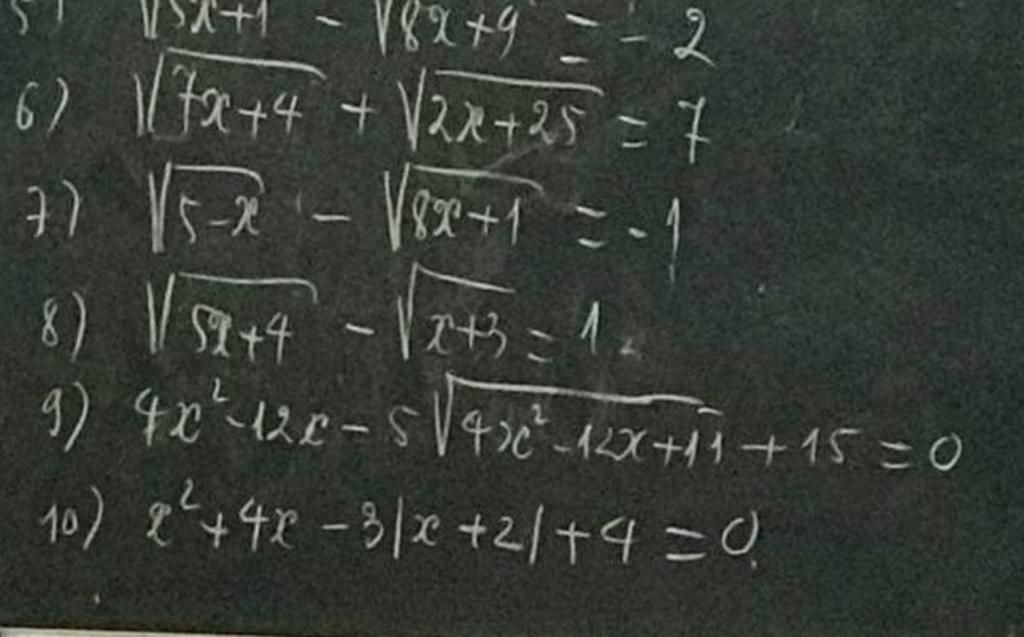 5) √5x+1 - √8x+9 = -2
6) √7x+4 + √2x+25 = 7
7) √5-x - √8x+1 = -1
8) √5x+4 - √x+3 = 1
9) 4x²-12x-5√4x²-12x+11 + 15 = 0
10) x²+4x-3|x+2|+4=0